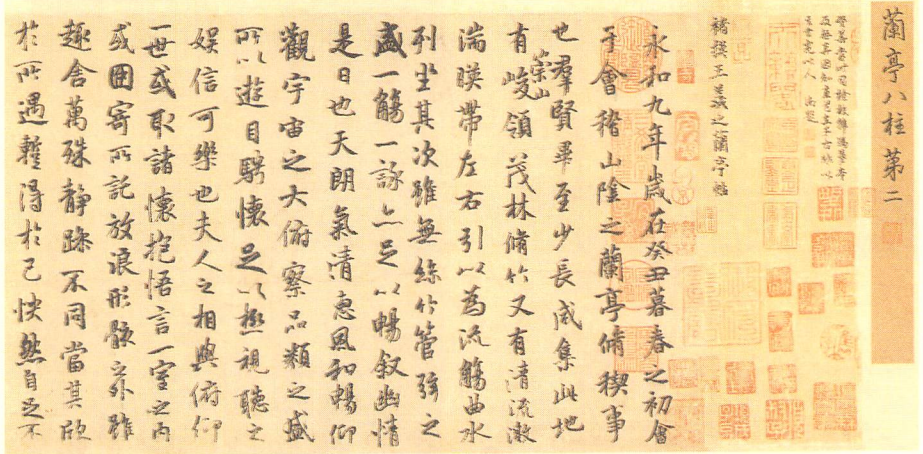 蘭亭八柱第二
褚摸王羲之蘭亭帖
永和九年歲在癸丑暮春之初會
于會稽山陰之蘭亭脩稧事
也羣賢畢至少長咸集此地
有崇山峻領茂林脩竹又有清流激
湍暎帶左右引以為流觴曲水
列坐其次雖無絲竹管弦之
盛一觴一詠亦足以暢叙幽情
是日也天朗氣清惠風和暢仰
觀宇宙之大俯察品類之盛
所以遊目騁懷足以極視聽之
娛信可樂也夫人之相與俯仰
一世或取諸懷抱悟言一室之內
或因寄所託放浪形骸之外雖
趣舍萬殊静躁不同當其欣
於所遇蹔得於己怏然自足不